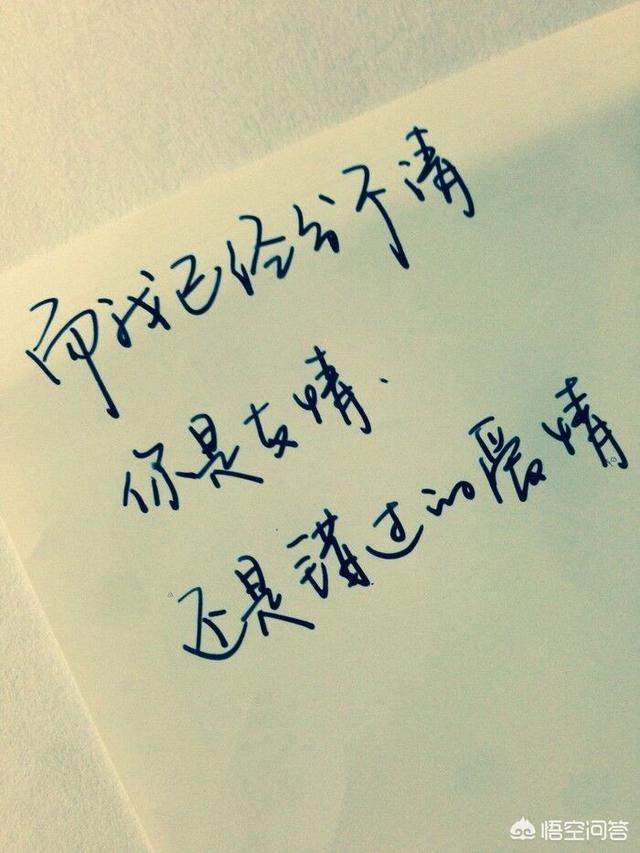 而我已经分不清
你是友情.
还是错过的爱情
悟空问答